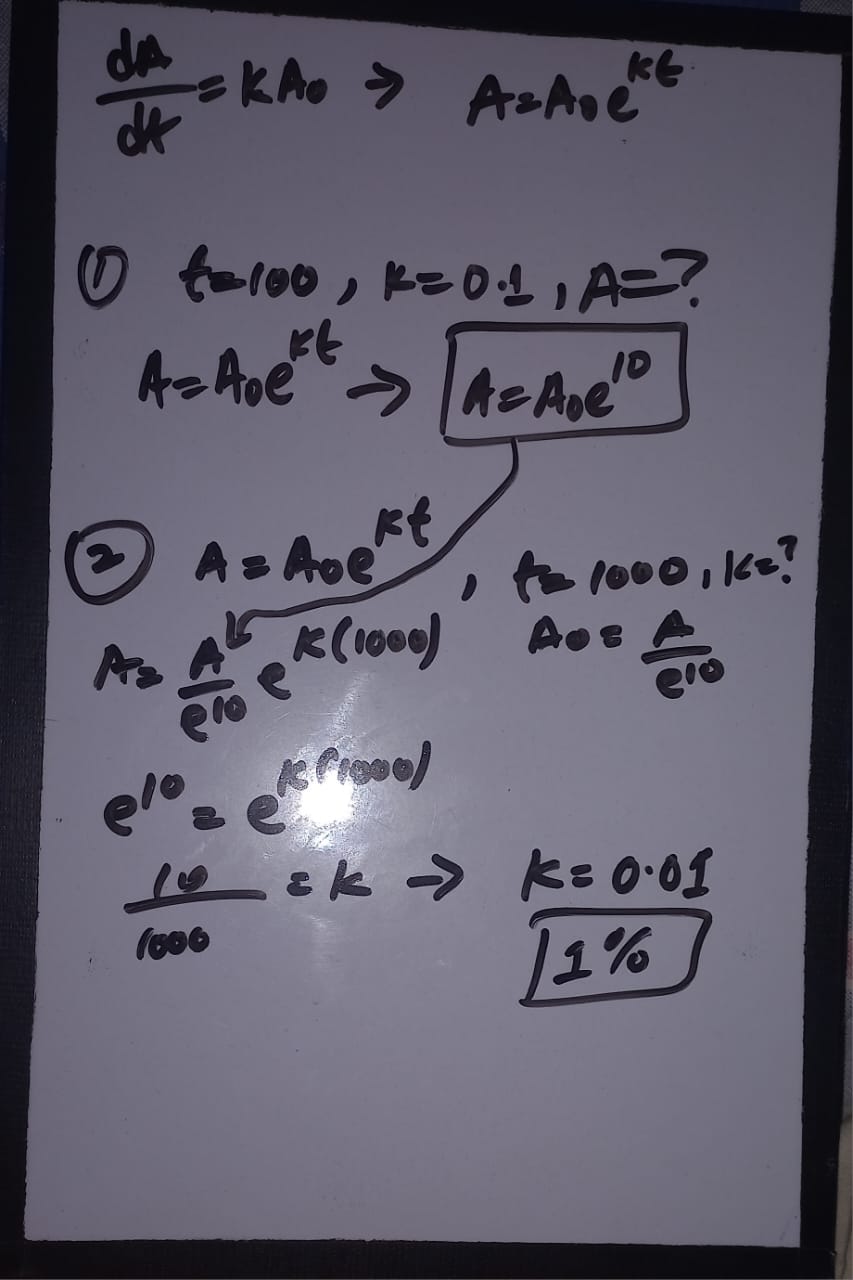 dA/dt = kA₀ → A = A₀e^kt
① t=100, k=0.1, A=?
A=A₀e^kt → A=A₀e^10
② A = A₀e^kt, t=1000, k=?
A= A/e^10 e^k(1000) A₀ = A/e^10
e^10 = e^k(1000)
10/1000 = k → k=0.01
1%